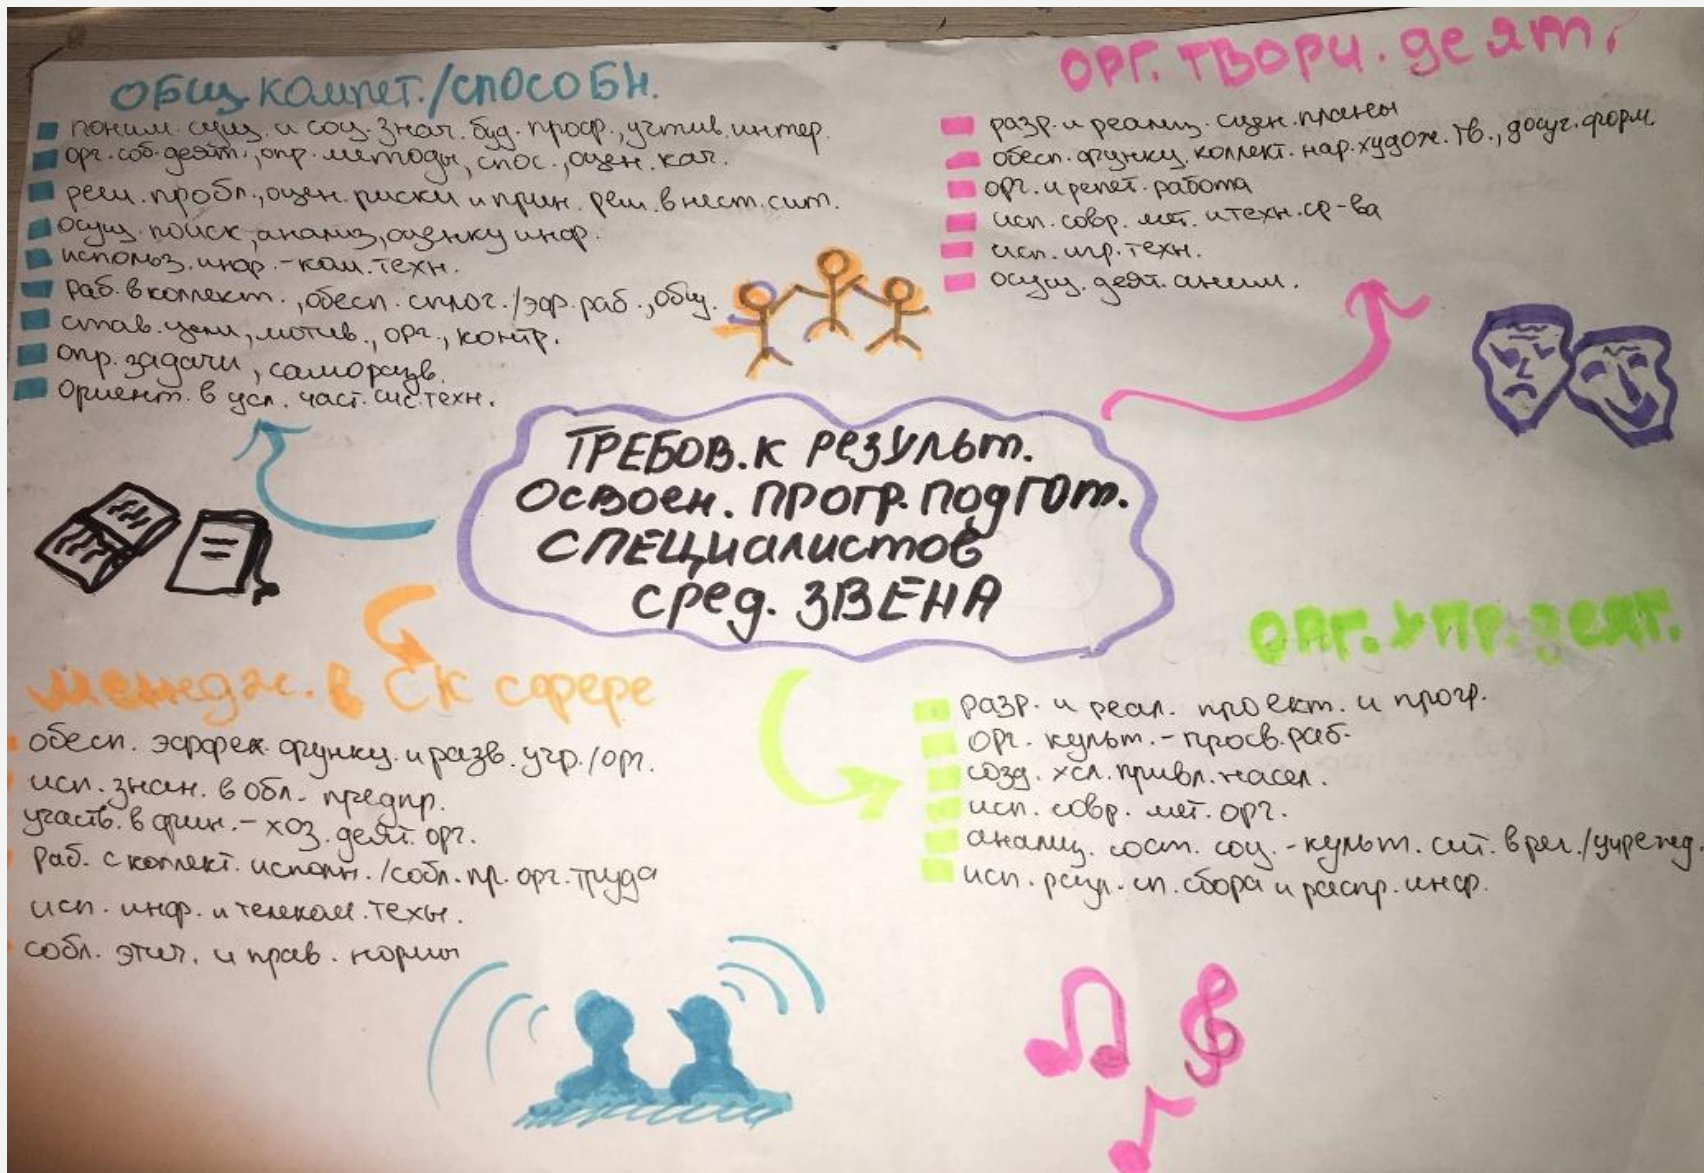 ОБЩ. КОМПЕТ./СПОСОБН.
поним. сущ. и соц. знач. буд. проф., устив. интер.
орг. соб. деят., опр. методы, спос., оцен. кач.
реш. пробл., оцен. риски и прин. реш. в нест. сит.
осущ. поиск, анализ, оценку инф.
использ. инф.-ком. техн.
раб. в коллект., обесп. сплоч./эф. раб., общ.
став. цели, мотив., орг., контр.
опр. задачи, саморазв.
ориент. в усл. част. смс. техн.
ОРГ. ТВОРЧ. деят.
разр. и реализ. сцен. планы
обесп. функц. коллект. нар. худож. тв., досуг. форм.
орг. и репет. работа
исп. совр. мет. и техн. ср-ва
исп. игр. техн.
осущ. деят. аним.
ТРЕБОВ. К РЕЗУЛЬТ.
ОСВОЕН. ПРОГР. ПОДГОТ.
СПЕЦИАЛИСТОВ
СРЕД. ЗВЕНА
менедж. в СК сфере
обесп. эффек. функц. и разв. учр./орг.
исп. знан. в обл. предпр.
участв. в фин.-хоз. деят. орг.
раб. с коллект. исполн./собл. пр. орг. труда
исп. инф. и телеком. техн.
собл. этич. и прав. нормы
ОРГ. УПР. деят.
разр. и реал. проект. и прогр.
орг. культ.-просв. раб.
созд. усл. привл. насел.
исп. совр. мет. орг.
анализ. сост. соц.-культ. сит. в рег./учрежд.
исп. сп. сбора и распр. инф.